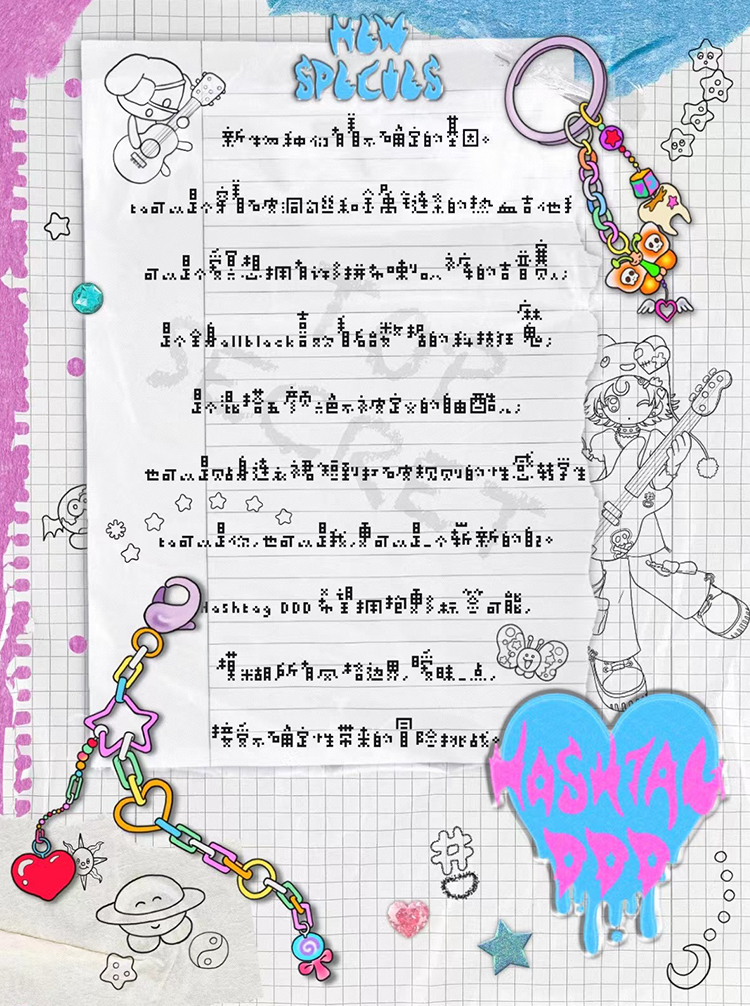 NEW
SPECIES
新生物种们有着不确定的基因。
ta可以是个穿着破洞丝袜和金属链条的热血吉他手
可以是个 想拥有许多拼布喇叭裤的古着
是个全身allblack喜欢 的科技狂魔,
是个混搭五颜六色不被定义的自由酷儿,
也可以是 不被规则的性感转学生
ta可以是你,也可以是我,更可以是一个崭新的自己。
Hashtag DDD 希望拥抱更多标签可能,
模糊所有风格边界,暧昧一点,
接受不确定性带来的冒险挑战。
TOP
SECRET
HASHTAG
DDD
#